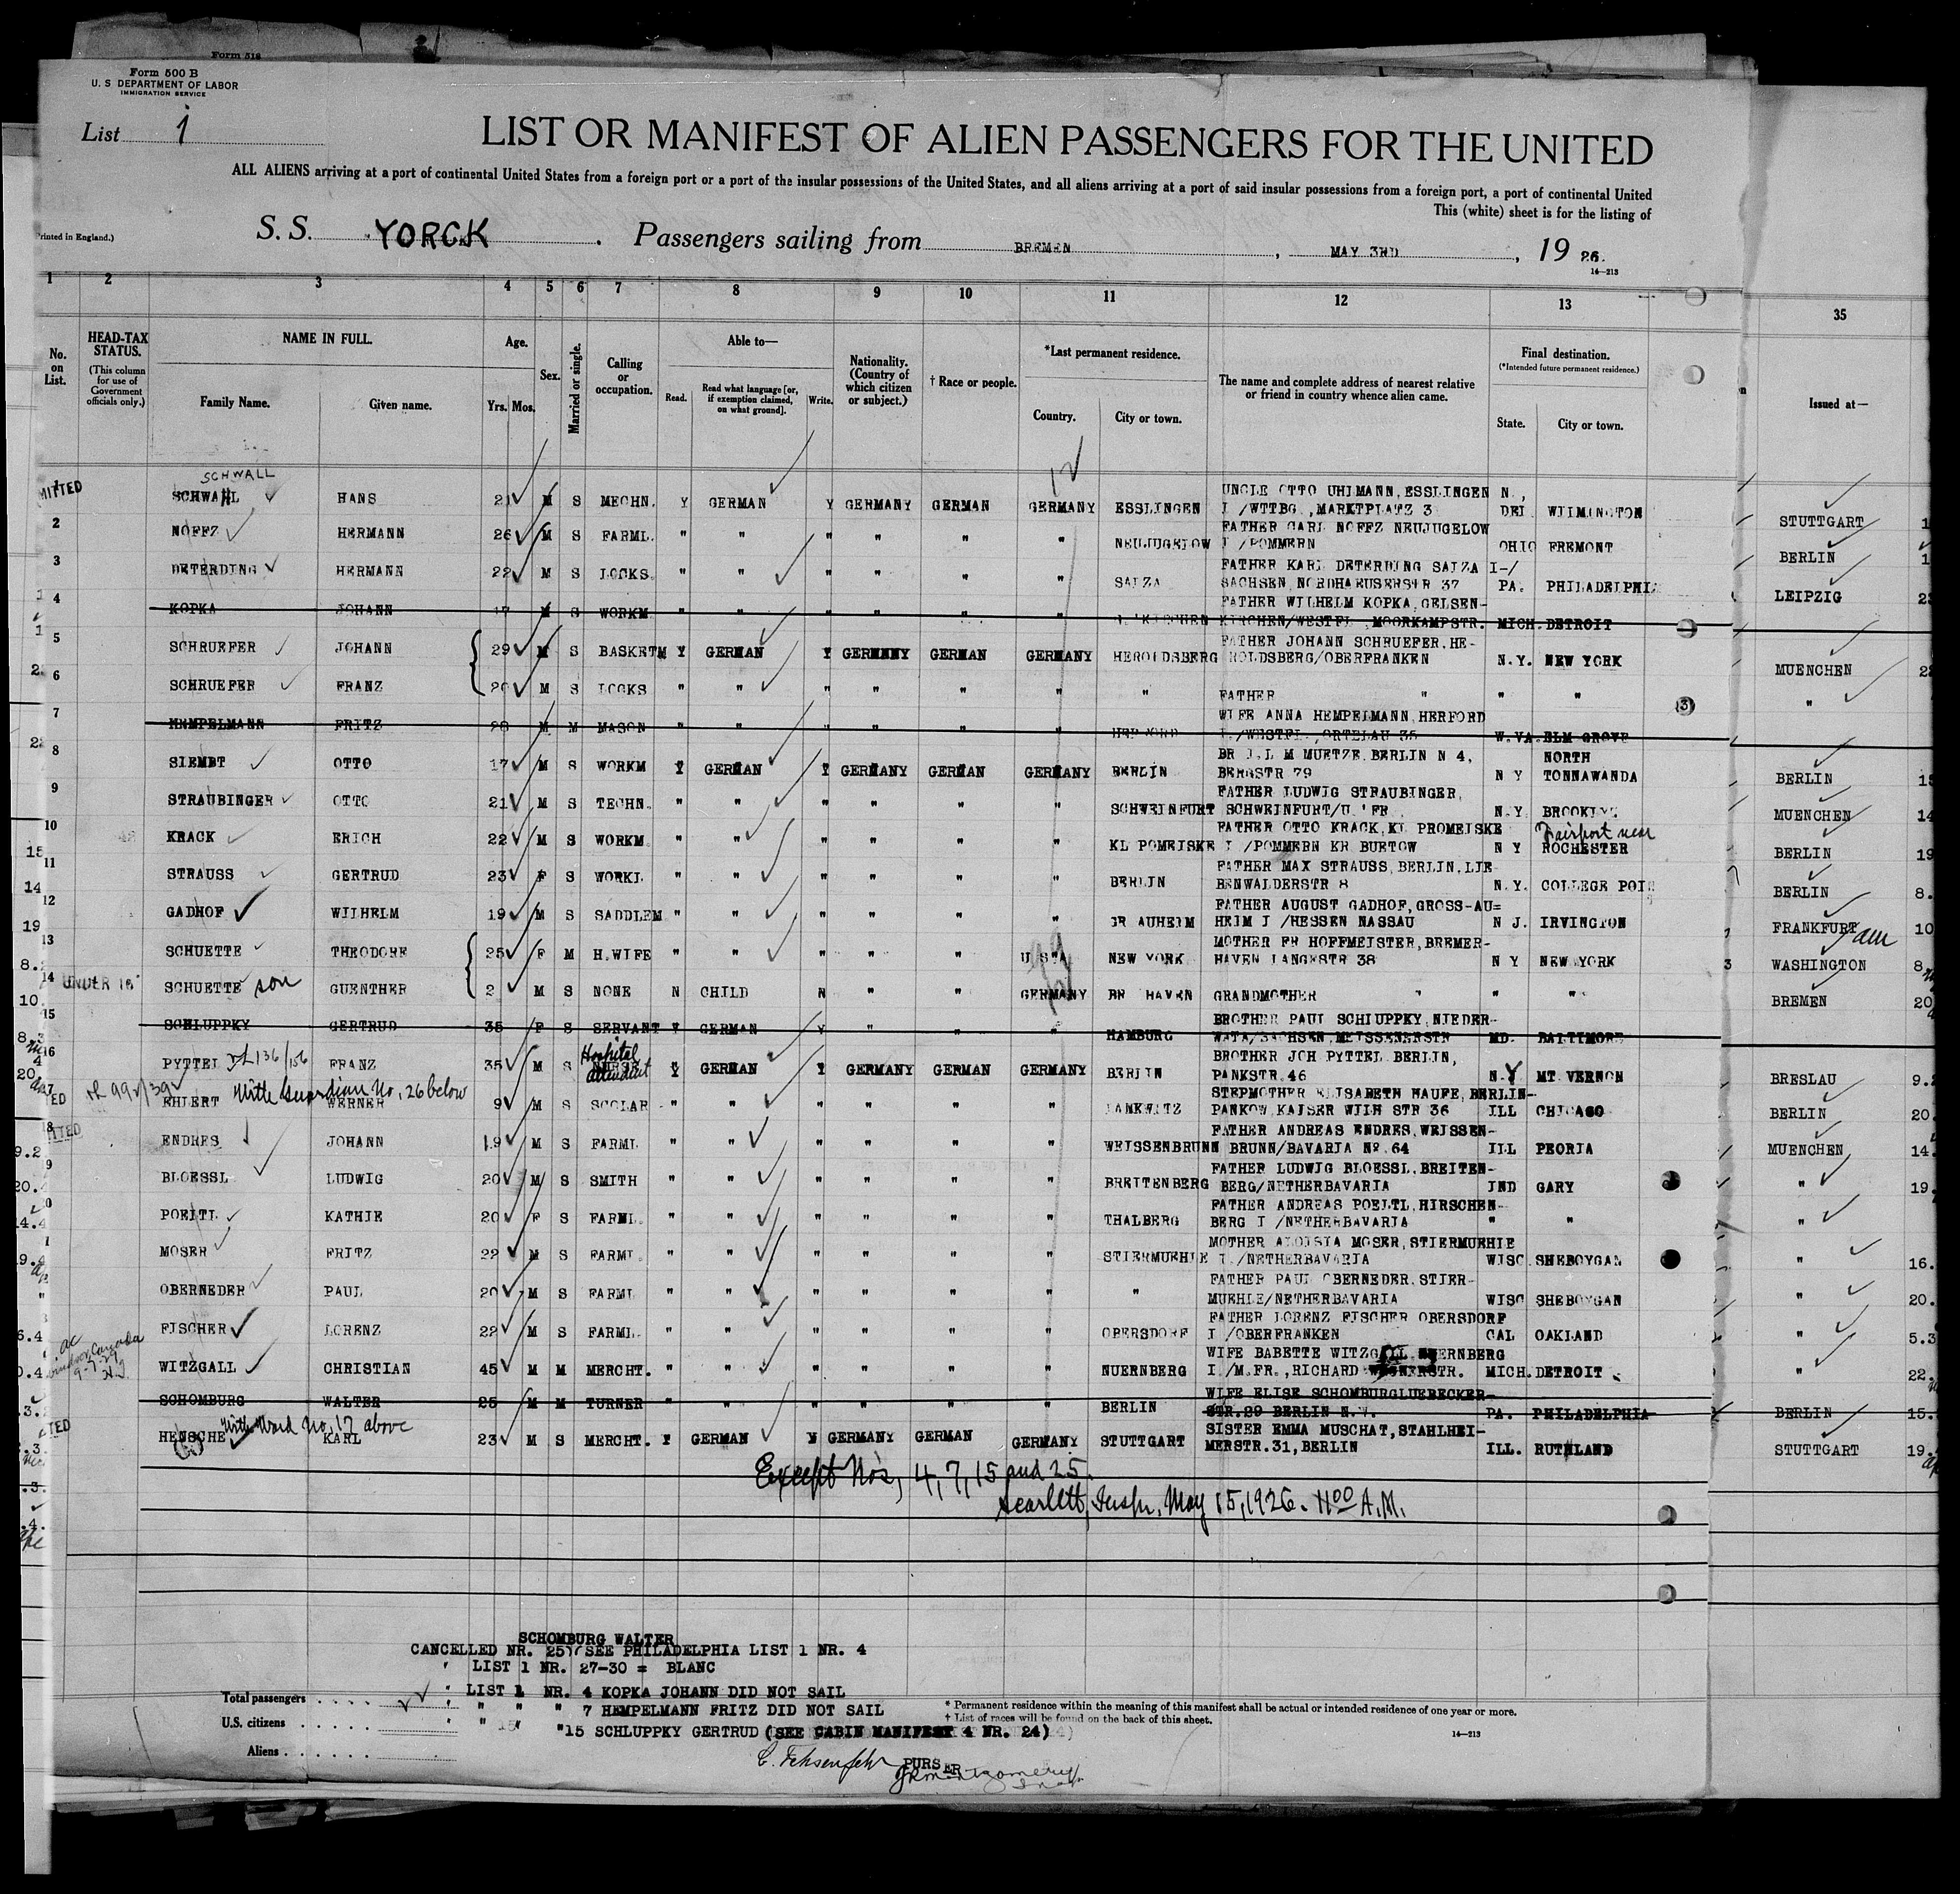 Form 518
Form 500 B
U. S DEPARTMENT OF LABOR
IMMIGRATION SERVICE
List 1
LIST OR MANIFEST OF ALIEN PASSENGERS FOR THE UNITED
ALL ALIENS arriving at a port of continental United States from a foreign port or a port of the insular possessions of the United States, and all aliens arriving at a port of said insular possessions from a foreign port, a port of continental United
This (white) sheet is for the listing of
Printed in England.)
S. S. YORCK . Passengers sailing from BREMEN , MAY 3RD , 19 26.
14—213
1 2 3 4 5 6 7 8 9 10 11 12 13 35
No. on List. HEAD-TAX STATUS. (This column for use of Government officials only.) NAME IN FULL. Family Name. Given name. Age. Yrs. Mos. Sex. Married or single. Calling or occupation. Able to— Read. Read what language [or, if exemption claimed, on what ground]. Write. Nationality. (Country of which citizen or subject.) † Race or people. *Last permanent residence. Country. City or town. The name and complete address of nearest relative or friend in country whence alien came. Final destination. (*Intended future permanent residence.) State. City or town. Issued at—
SCHWALL
MITTED SCHWAHL HANS 21 M S MECHN. Y GERMAN Y GERMANY GERMAN GERMANY ESSLINGEN UNCLE OTTO UHLMANN, ESSLINGEN I /WTTBG., MARKTPLATZ 3 DEL WILMINGTON STUTTGART
2 NOFFZ HERMANN 26 M S FARML. " " " " " " NEUJUGELOW FATHER CARL NOFFZ NEUJUGELOW I /POMMERN OHIO FREMONT BERLIN
3 DETERDING HERMANN 22 M S LOCKS. " " " " " " SALZA FATHER KARL DETERDING SALZA I-/ SACHSEN, NORDHAEUSERSTR 37 PA. PHILADELPHI LEIPZIG
4 KOPKA JOHANN 17 M S WORKM " " " " " " FATHER WILHELM KOPKA, GELSEN- KIRCHEN/WESTFL., MOORKAMPSTR. MICH. DETROIT
5 SCHRUEFER JOHANN 29 M S BASKETM Y GERMAN Y GERMANY GERMAN GERMANY HEROLDSBERG FATHER JOHANN SCHRUEFER, HE- ROLDSBERG/OBERFRANKEN N.Y. NEW YORK MUENCHEN
6 SCHRUEFER FRANZ 20 M S LOCKS " " " " " " " FATHER " " " "
7 HEMPELMANN FRITZ 28 M M MASON " " " " " " HERFORD WIFE ANNA HEMPELMANN, HERFORD I./WESTFL., ORTELAU 35 W.VA. ELM GROVE
8 SIEMBT OTTO 17 M S WORKM Y GERMAN Y GERMANY GERMAN GERMANY BERLIN BR I.L M MUETZE, BERLIN N 4, BERGSTR 79 N Y NORTH TONNAWANDA BERLIN
9 STRAUBINGER OTTO 21 M S TECHN. " " " " " " SCHWEINFURT FATHER LUDWIG STRAUBINGER, SCHWEINFURT/U 'FR N.Y. BROOKLYN MUENCHEN
10 KRACK ERICH 22 M S WORKM " " " " " " KL POMEISKE FATHER OTTO KRACK, KL PROMEISKE I /POMMERN KR BUETOW N Y Fairport near ROCHESTER BERLIN
11 STRAUSS GERTRUD 23 F S WORKL " " " " " " BERLIN FATHER MAX STRAUSS, BERLIN, LIE- BENWALDERSTR 8 N.Y. COLLEGE POI BERLIN
12 GADHOF WILHELM 19 M S SADDLEM " " " " " " GR AUHEIM FATHER AUGUST GADHOF, GROSS-AU= HEIM I /HESSEN NASSAU N J. IRVINGTON FRANKFURT am
13 SCHUETTE THEODORE 25 F M H.WIFE " " " " " U S A NEW YORK MOTHER FR HOFFMEISTER, BREMER- HAVEN LANGESTR 38 N Y NEW YORK WASHINGTON
14 UNDER 16 SCHUETTE son GUENTHER 2 M S NONE N CHILD N " " GERMANY BR HAVEN GRANDMOTHER " " " BREMEN
15 SCHLUPPKY GERTRUD 35 F S SERVANT Y GERMAN Y " " " HAMBURG BROTHER PAUL SCHLUPPKY, NIEDER- WATA/SACHSEN, MEISSENENSTR MD. BALTIMORE
16 PYTTEL FRANZ 35 M S Hospital NURSE attendant Y GERMAN Y GERMANY GERMAN GERMANY BERLIN BROTHER JOH PYTTEL BERLIN, PANKSTR.46 N.Y MT VERNON BRESLAU
With Guardian No. 26 below
17 EHLERT WERNER 9 M S SCOLAR " " " " " " LANKWITZ STEPMOTHER ELISABETH HAUFE, BERLIN- PANKOW, KAISER WILH STR 36 ILL CHICAGO BERLIN
18 ENDRES JOHANN 19 M S FARML " " " " " " WEISSENBRUNN FATHER ANDREAS ENDRES, WEISSEN- BRUNN/BAVARIA No.64 ILL PEORIA MUENCHEN
19 BLOESSL LUDWIG 20 M S SMITH " " " " " " BREITENBERG FATHER LUDWIG BLOESSL, BREITEN- BERG/NETHERBAVARIA IND GARY "
20 POELTL KATHIE 20 F S FARML. " " " " " " THALBERG FATHER ANDREAS POELTL, HIRSCHEN- BERG I /NETHERBAVARIA " " "
21 MOSER FRITZ 22 M S FARML. " " " " " " STIERMUEHLE MOTHER ALOISIA MOSER, STIERMUEHLE I./NETHERBAVARIA WISC SHEBOYGAN "
OBERNEDER PAUL 20 M S FARML " " " " " " " FATHER PAUL OBERNEDER, STIER- MUEHLE/NETHERBAVARIA WISC SHEBOYGAN "
FISCHER LORENZ 22 M S FARML. " " " " " " OBERSDORF FATHER LORENZ FISCHER OBERSDORF I /OBERFRANKEN CAL OAKLAND "
WITZGALL CHRISTIAN 45 M M MERCHT. " " " " " " NUERNBERG WIFE BABETTE WITZGALL NUERNBERG I /M.FR., RICHARD WAGNERSTR. MICH. DETROIT "
SCHOMBURG WALTER 25 M M TURNER " " " " " " BERLIN WIFE ELISE SCHOMBURGLUEBECKER- STR.29 BERLIN N.W. PA. PHILADELPHIA BERLIN
With Ward No. 17 above
HENSCHE KARL 23 M S MERCHT. Y GERMAN Y GERMANY GERMAN GERMANY STUTTGART SISTER EMMA MUSCHAT, STAHLHEI- MERSTR.31, BERLIN ILL. RUTHLAND STUTTGART
Except Nos, 4, 7, 15 and 25.
Scarlett, Inspr. May 15, 1926. 11 00 A.M.
SCHOMBURG WALTER
CANCELLED NR. 25) (SEE PHILADELPHIA LIST 1 NR. 4
" LIST 1 NR. 27-30 = BLANC
" LIST 1 NR. 4 KOPKA JOHANN DID NOT SAIL
" " " " 7 HEMPELMANN FRITZ DID NOT SAIL
" " "15 SCHLUPPKY GERTRUD (SEE CABIN MANIFEST 4 NR. 24)
Total passengers
U.S. citizens
Aliens
* Permanent residence within the meaning of this manifest shall be actual or intended residence of one year or more.
† List of races will be found on the back of this sheet.
14—213
C. Fehsenfehr PURSER
JR Montgomery